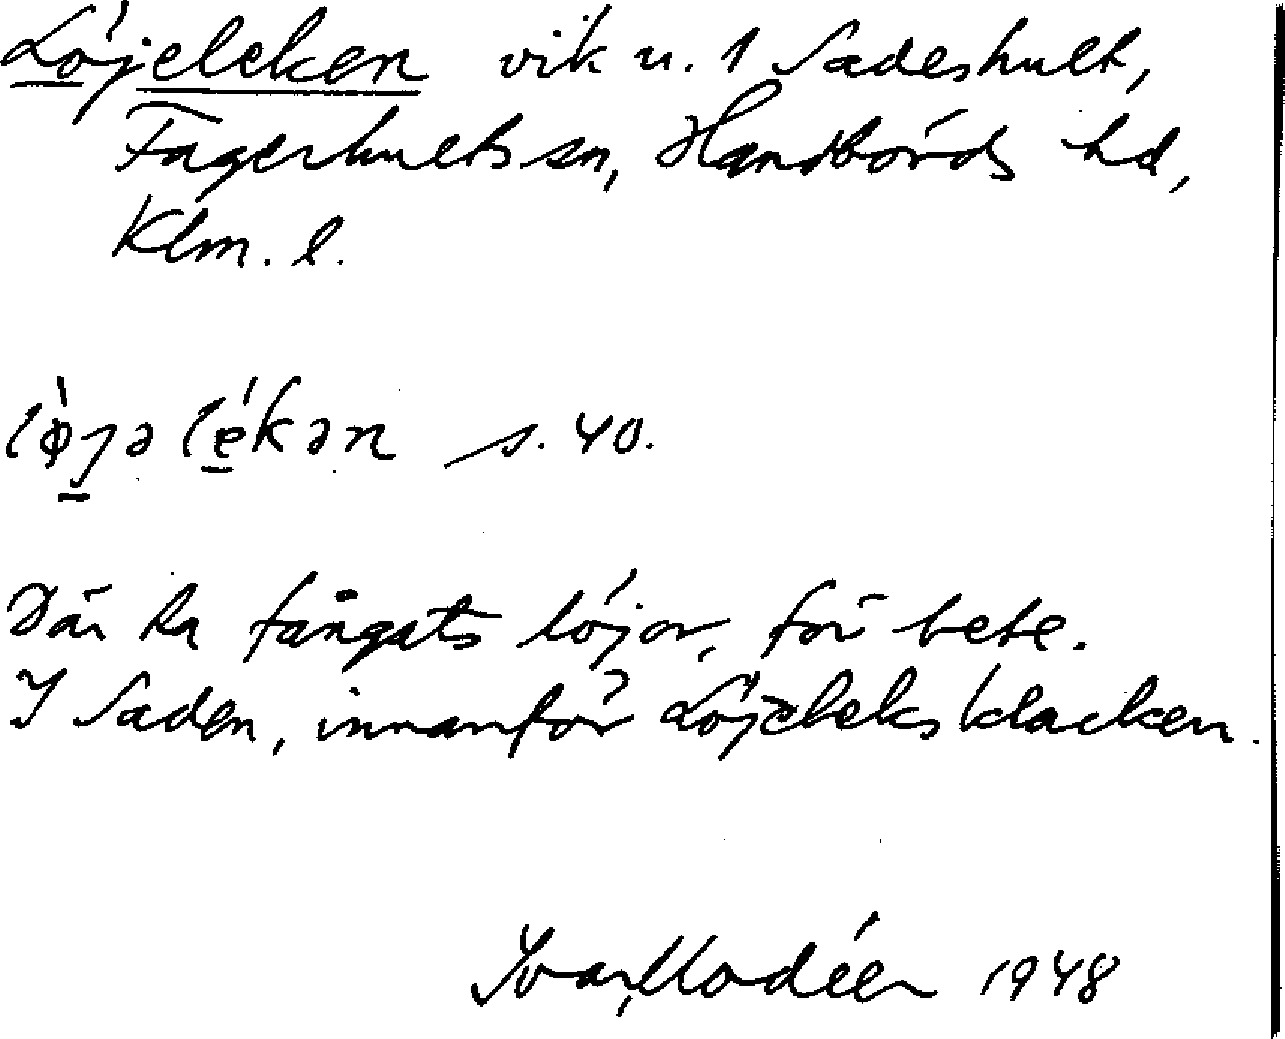 Löjeleken vik u. 1 Sadeshult,
Fagerhults sn, Handbörds hd,
Klm. l.
lø̀jəlé̠kən s. 40.
Där ha fångats löjor, för bete.
I Saden, innanför Löjeleksklacken.
Ivar Modéer 1948